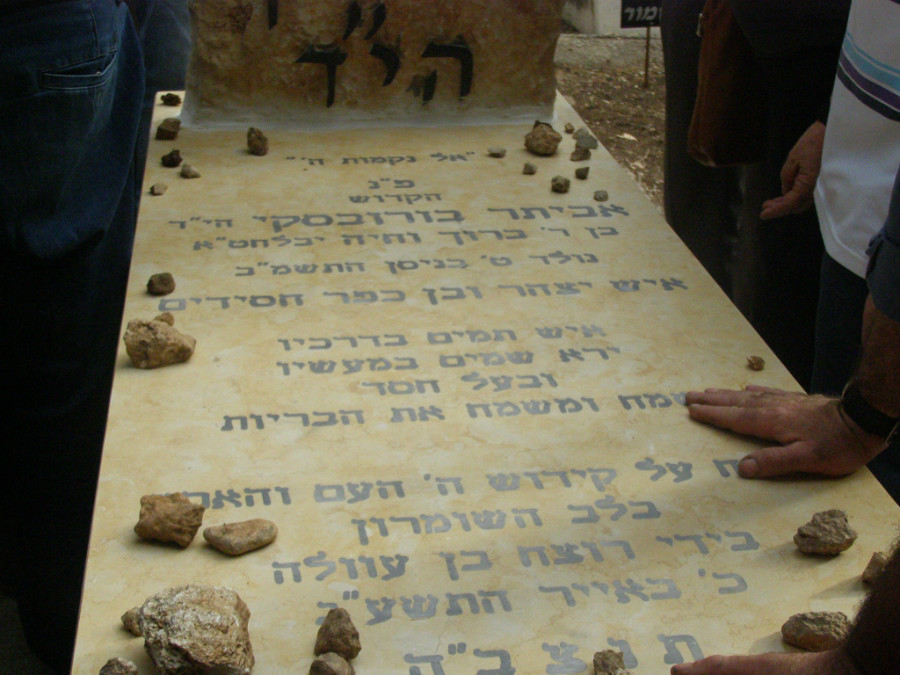 הי"ד
"אל נקמות ה'"
פ"נ
הקדוש
אביתר בורובסקי הי"ד
בן ר' ברוך וחיה יבלחט"א
נולד ט' בניסן התשמ"ב
איש יצהר ובן כפר חסידים
איש תמים בדרכיו
ירא שמים במעשיו
ובעל חסד
ומשמח את הבריות
על קידוש ה' העם
בלב השומרון
בידי רוצח בן עוולה
כ' באייר התשע"ג
ת נ צ ב"ה